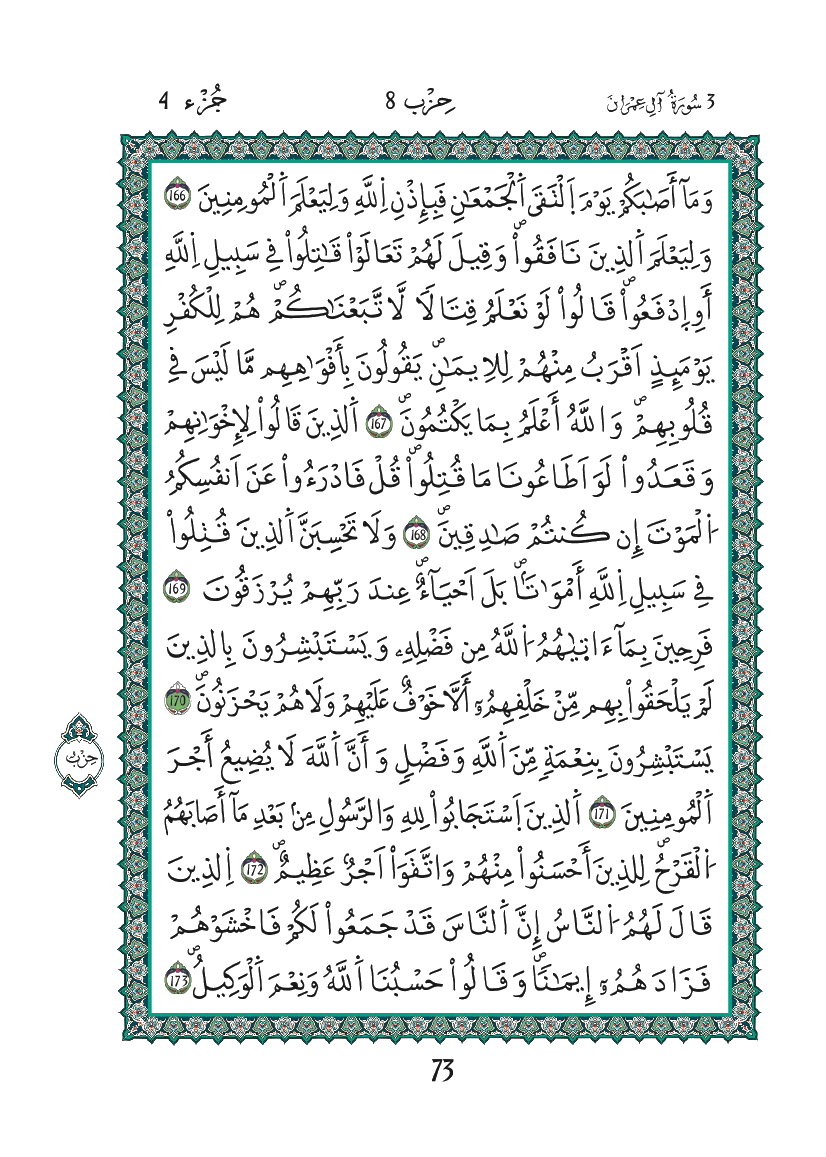 3 سُورَةُ آلِ عِمْرَانَ حِزْب 8 جُزْء 4
وَمَآ أَصَٰبَكُمْ يَوْمَ اَ۬لْتَقَى اَ۬لْجَمْعَٰنِ فَبِإِذْنِ اِ۬للَّهِ وَلِيَعْلَمَ اَ۬لْمُومِنِينَ 166
وَلِيَعْلَمَ اَ۬لذِينَ نَافَقُواْۖ وَقِيلَ لَهُمْ تَعَالَوْاْ قَٰتِلُواْ فِے سَبِيلِ اِ۬للَّهِ
أَوِ اِ۪دْفَعُواْۖ قَالُواْ لَوْ نَعْلَمُ قِتَالاَ لَّا تَّبَعْنَٰكُمْۖ هُمْ لِلْكُفْرِ
يَوْمَئِذٍ اَقْرَبُ مِنْهُمْ لِلِايمَٰنِۖ يَقُولُونَ بِأَفْوَاهِهِم مَّا لَيْسَ فِے
قُلُوبِهِمْۖ وَاللَّهُ أَعْلَمُ بِمَا يَكْتُمُونَۖ 167 اَ۬لذِينَ قَالُواْ لِإِخْوَٰنِهِمْ
وَقَعَدُواْ لَوَ اَطَاعُونَا مَا قُتِلُواْۖ قُلْ فَادْرَءُواْ عَنَ اَنفُسِكُمُ
اُ۬لْمَوْتَ إِن كُنتُمْ صَٰدِقِينَۖ 168 وَلَا تَحْسِبَنَّ اَ۬لذِينَ قُتِلُواْ
فِے سَبِيلِ اِ۬للَّهِ أَمْوَٰتاَۢۖ بَلَ اَحْيَآءٌۖ عِندَ رَبِّهِمْ يُرْزَقُونَ 169
فَرِحِينَ بِمَآ ءَات۪يٰهُمُ اُ۬للَّهُ مِن فَضْلِهِۦ وَيَسْتَبْشِرُونَ بِالذِينَ
لَمْ يَلْحَقُواْ بِهِم مِّنْ خَلْفِهِمُۥٓ أَلَّا خَوْفٌ عَلَيْهِمْ وَلَا هُمْ يَحْزَنُونَۖ 170
يَسْتَبْشِرُونَ بِنِعْمَةٍ مِّنَ اَ۬للَّهِ وَفَضْلٍ وَأَنَّ اَ۬للَّهَ لَا يُضِيعُ أَجْرَ
اَ۬لْمُومِنِينَ 171 اَ۬لذِينَ اَ۪سْتَجَابُواْ لِلهِ وَالرَّسُولِ مِنۢ بَعْدِ مَآ أَصَابَهُمُ
اُ۬لْقَرْحُۖ لِلذِينَ أَحْسَنُواْ مِنْهُمْ وَاتَّقَوَاْ اَجْرٌ عَظِيمٌۖ 172 اِ۬لذِينَ
قَالَ لَهُمُ اُ۬لنَّاسُ إِنَّ اَ۬لنَّاسَ قَدْ جَمَعُواْ لَكُمْ فَاخْشَوْهُمْ
فَزَادَهُمُۥٓ إِيمَٰناًۖ وَقَالُواْ حَسْبُنَا اَ۬للَّهُ وَنِعْمَ اَ۬لْوَكِيلُۖ 173
حِزْب
73